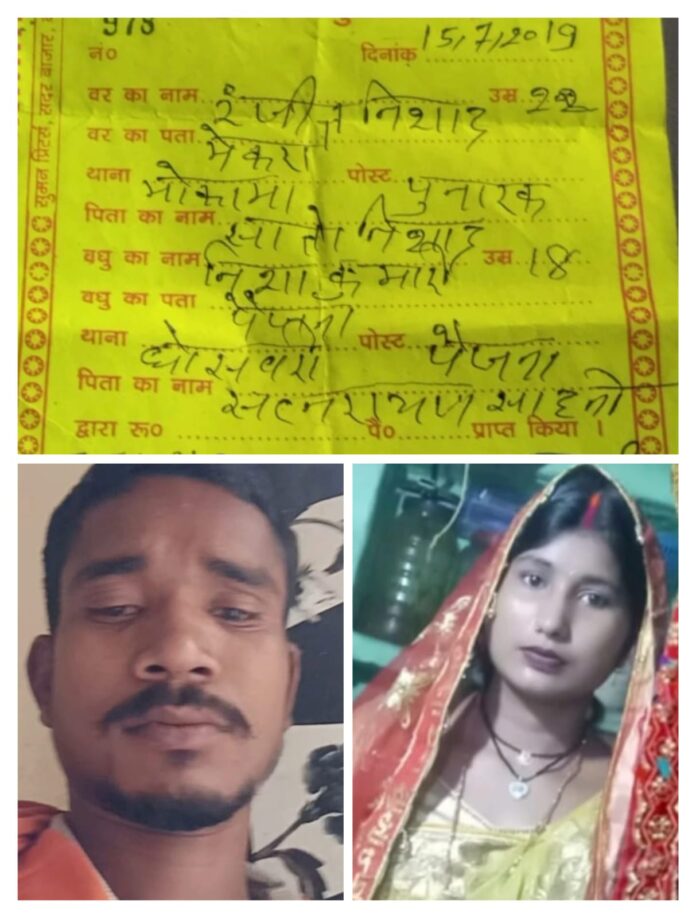 978
नं० दिनांक 15/7/2019
वर का नाम रंजीत निशाद उम्र 22
वर का पता मेकरा
थाना मोकामा पोस्ट पुनारक
पिता का नाम निशाद
वधु का नाम निशा कुमारी उम्र 18
वधु का पता
थाना घोसवरी पोस्ट पैजना
पिता का नाम सत्नरायण साहनी
द्वारा रू० पै० प्राप्त किया ।
सुमन प्रिंटर्स, सदर बाजार,